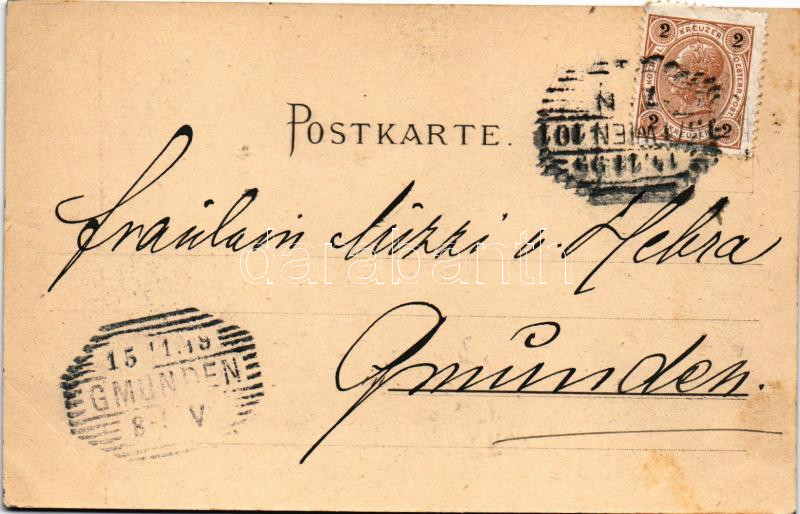 2 KREUZER 2
2 KREUZER 2
WIEN 101
14.11.99
POSTKARTE.
Fräulein Mizzi v. Hebra
darabanth
Gmunden.
15 11.19
GMUNDEN
8 V